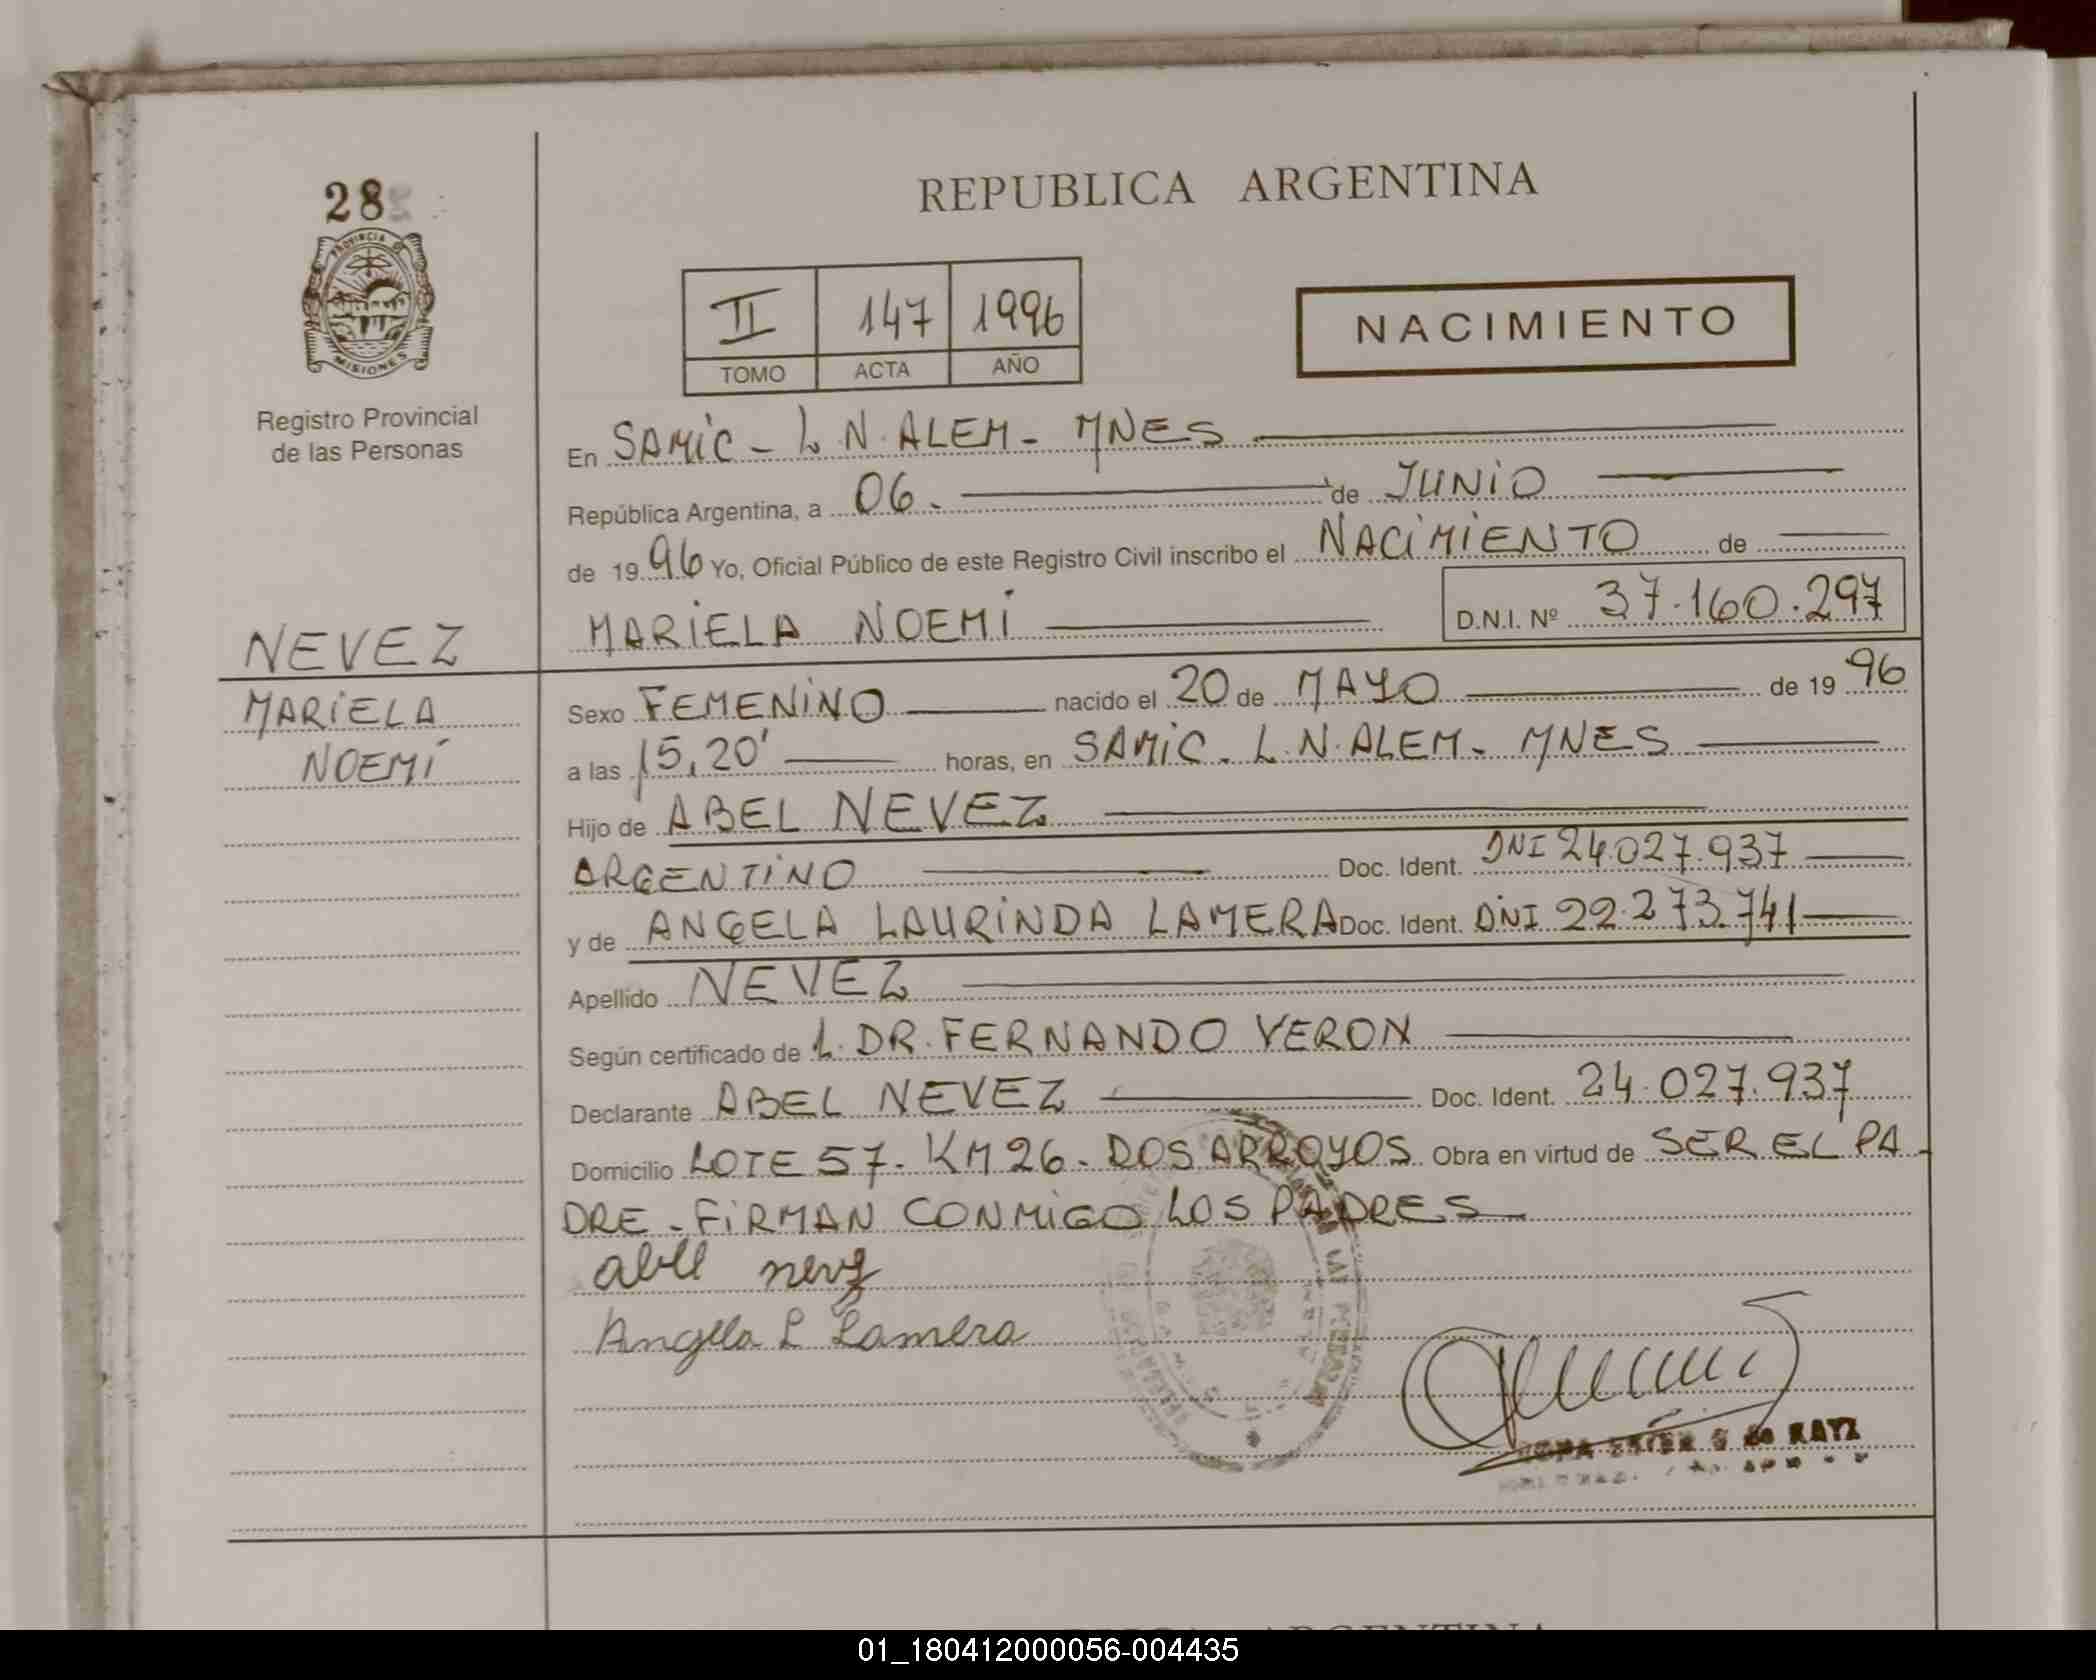 28
PROVINCIA DE
MISIONES
Registro Provincial
de las Personas
NEVEZ
MARIELA
NOEMÍ
REPUBLICA ARGENTINA
II 147 1996
TOMO ACTA AÑO
NACIMIENTO
En SAMIC - L. N. ALEM - MNES
República Argentina, a 06. de JUNIO
de 1996 Yo, Oficial Público de este Registro Civil inscribo el NACIMIENTO de
MARIELA NOEMÍ D.N.I. Nº 37.160.297
Sexo FEMENINO nacido el 20 de MAYO de 1996
a las 15,20' horas, en SAMIC - L. N. ALEM - MNES
Hijo de ABEL NEVEZ
ARGENTINO Doc. Ident. DNI 24.027.937
y de ANGELA LAURINDA LAMERA Doc. Ident. DNI 22.273.741
Apellido NEVEZ
Según certificado de L. DR. FERNANDO VERON
Declarante ABEL NEVEZ Doc. Ident. 24.027.937
Domicilio LOTE 57 - KM 26 - DOS ARROYOS Obra en virtud de SER EL PA-
DRE - FIRMAN CONMIGO LOS PADRES
Angela L Lamera
01_180412000056-004435